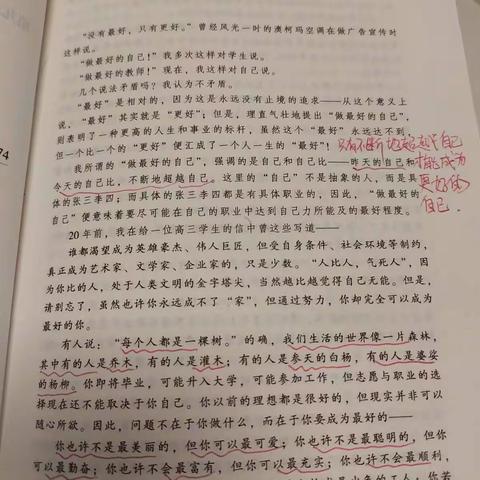 “没有最好，只有更好。”曾经风光一时的澳柯玛空调在做广告宣传时
这样说。
“做最好的自己！”我多次这样对学生说。
“做最好的教师！”现在，我这样对自己说。
几个说法矛盾吗？我认为不矛盾。
“最好”是相对的，因为这是永远没有止境的追求——从这个意义上
说，“最好”其实就是“更好”；但是，理直气壮地提出“做最好的自己”，
则表明了一种更高的人生和事业的标杆，虽然这个“最好”永远达不到，
但一个比一个的“更好”便汇成了一个人一生的“最好”！
我所谓的“做最好的自己”，强调的是自己和自己比——昨天的自己和
今天的自己比，不断地超越自己。这里的“自己”不是抽象的人，而是具
体的张三李四；而具体的张三李四都是有具体职业的，因此，“做最好的
自己”便意味着要尽可能在自己的职业中达到自己力所能及的最好程度。
只有不断地超越自己
才能成为
更好的
自己.
74
20年前，我在给一位高三学生的信中曾这些写道——
谁都渴望成为英雄豪杰、伟人巨匠，但受自身条件、社会环境等制约，
真正成为艺术家、文学家、企业家的，只是少数。“人比人，气死人”，因
为你比的人，处于人类文明的金字塔尖，当然越比越觉得自己无能。但是，
请别忘了，虽然也许你永远成不了“家”，但通过努力，你却完全可以成为
最好的你。
有人说：“每个人都是一棵树。”的确，我们生活的世界像一片森林，
其中有的人是乔木，有的人是灌木；有的人是参天的白杨，有的人是婆娑
的杨柳。你即将毕业，可能升入大学，可能参加工作，但志愿与职业的选
择现在还不能取决于你自己。你以前的理想都是很好的，但现实并非可以
随心所欲。因此，问题不在于你做什么，而在于你要成为最好的——
你也许不是最美丽的，但你可以最可爱；你也许不是最聪明的，但你
可以最勤奋；你也许不会最富有，但你可以最充实；你也许不会最顺利，